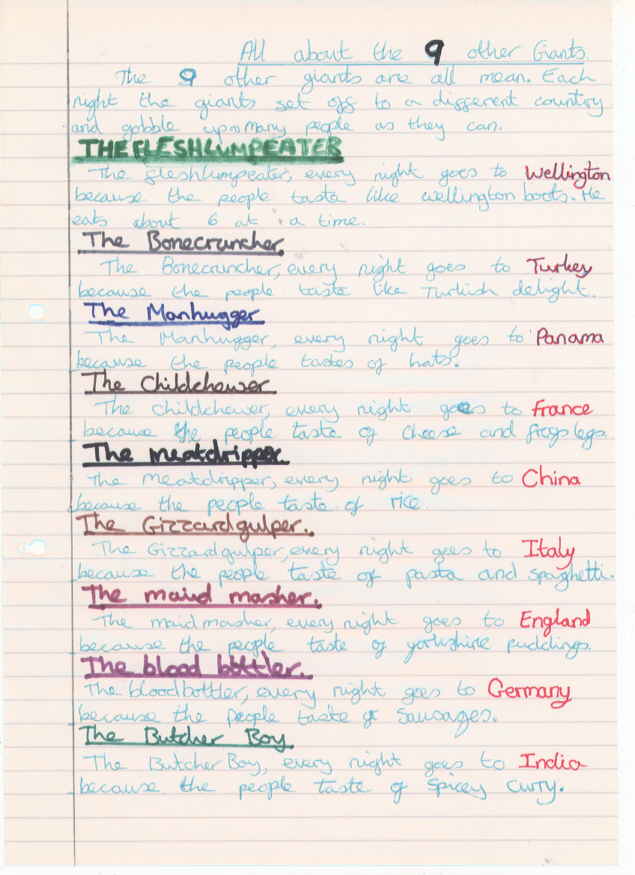 All about the 9 other Giants.
The 9 other giants are all mean. Each
night the giants set off to a different country
and gobble up as many people as they can.
THE FLESHLUMPEATER
The fleshlumpeater, every night goes to Wellington
because the people taste like wellington boots. He
eats about 6 at a time.
The Bonecruncher.
The Bonecruncher, every night goes to Turkey
because the people taste like Turkish delight.
The Manhugger
The Manhugger, every night goes to Panama
because the people tastes of hats.
The Childchewer
The Childchewer, every night goes to france
because the people taste of cheese and frogs legs.
The meatdripper
The meatdripper, every night goes to China
because the people taste of rice.
The Gizzardgulper.
The Gizzardgulper, every night goes to Italy
because the people taste of pasta and spaghetti.
The maid masher.
The maid masher, every night goes to England
because the people taste of yorkshire puddings.
The blood bottler.
The bloodbottler, every night goes to Germany
because the people taste of sausages.
The Butcher Boy
The Butcher Boy, every night goes to India
because the people taste of spicey curry.